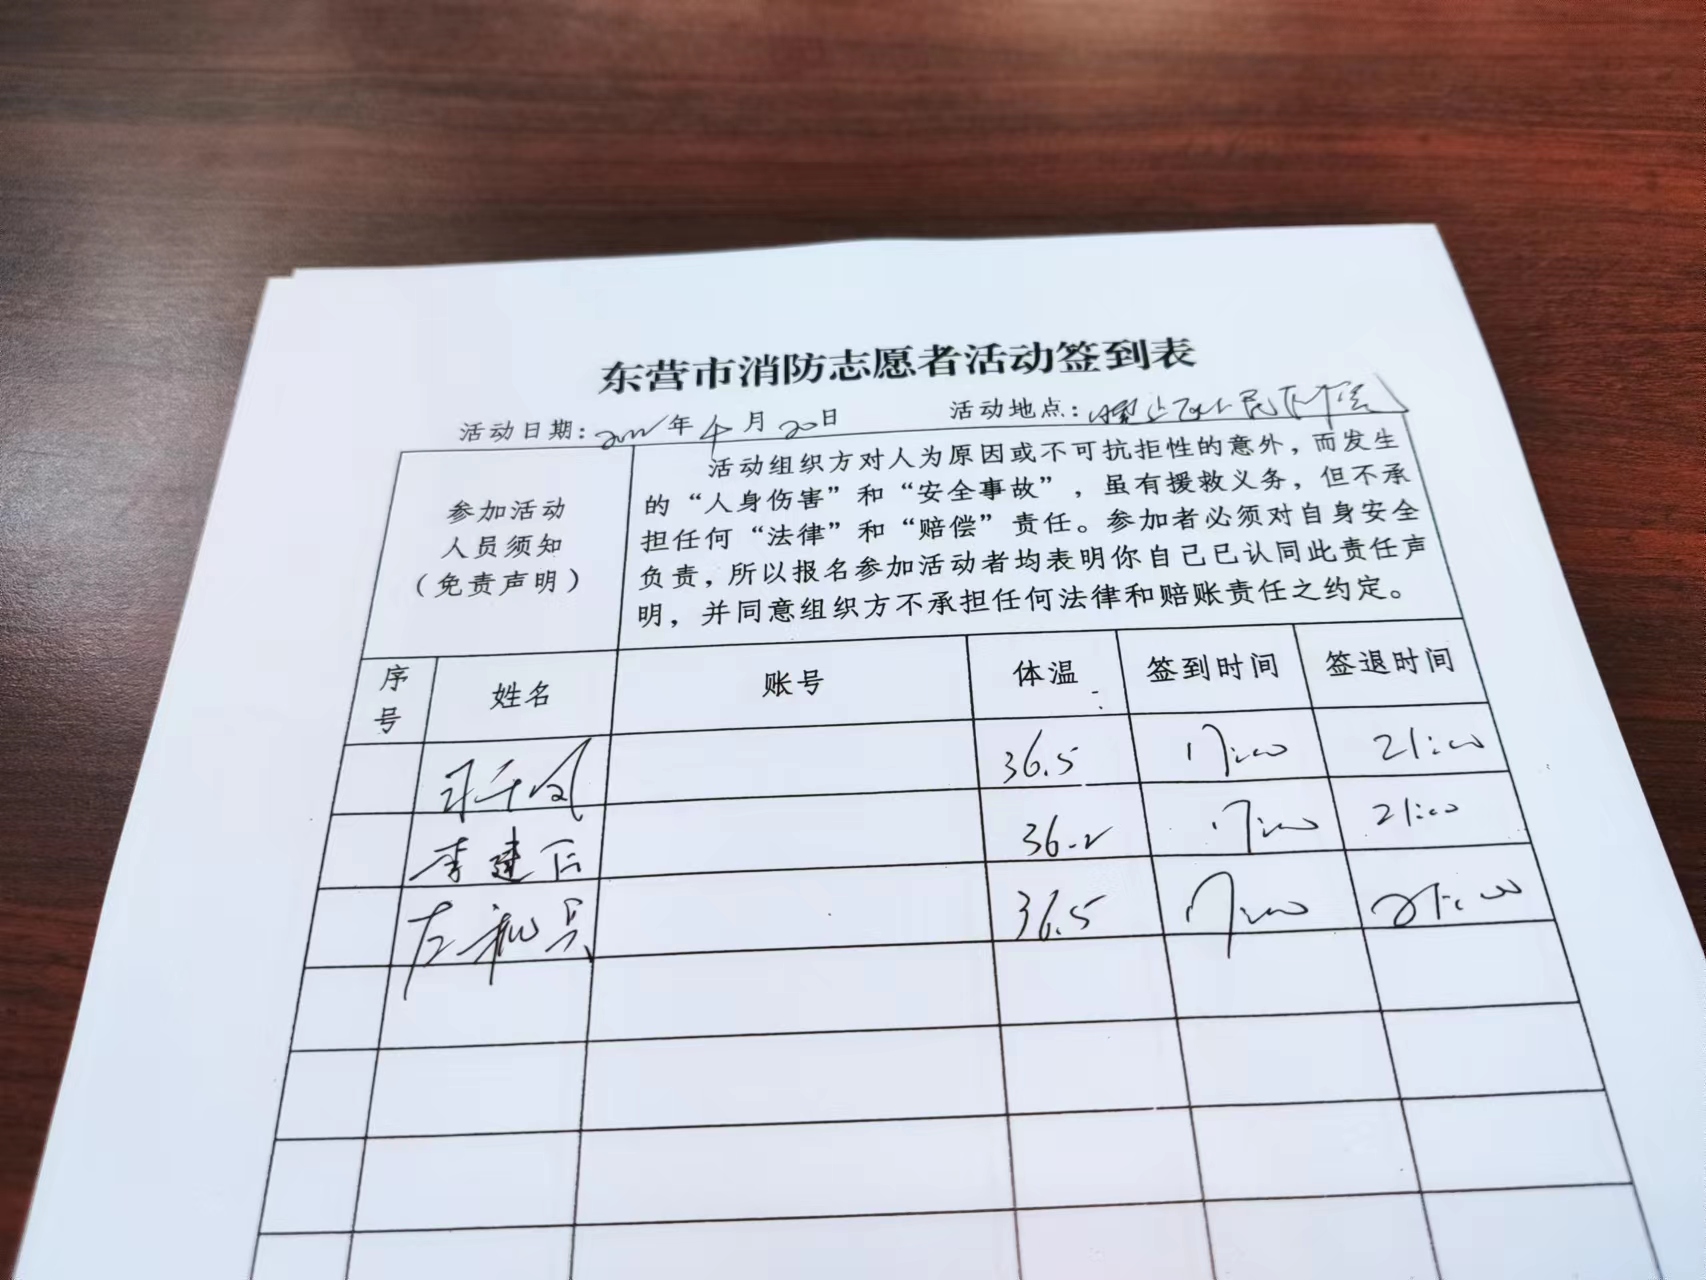 东营市消防志愿者活动签到表
活动日期：2022年4月20日 活动地点：
参加活动
人员须知
（免责声明）
活动组织方对人为原因或不可抗拒性的意外，而发生
的“人身伤害”和“安全事故”，虽有援救义务，但不承
担任何“法律”和“赔偿”责任。参加者必须对自身安全
负责，所以报名参加活动者均表明你自己已认同此责任声
明，并同意组织方不承担任何法律和赔账责任之约定。
序号 姓名 账号 体温 签到时间 签退时间
36.5 17:00 21:00
李建 36.2 17:00 21:00
左 36.5 17:00 21:00